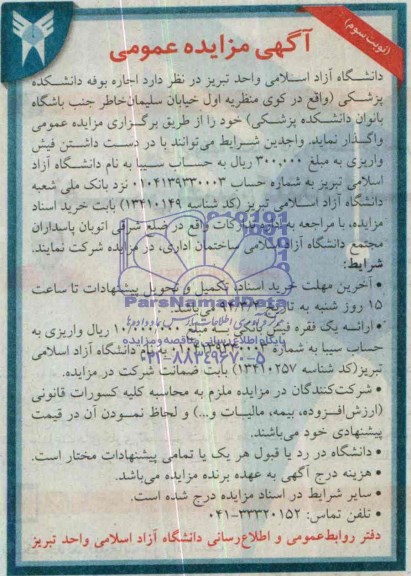 (نوبت سوم)
آگهی مزایده عمومی
دانشگاه آزاد اسلامی واحد تبریز در نظر دارد اجاره بوفه دانشکده
پزشکی (واقع در کوی منظریه اول خیابان سلیمان‌خاطر جنب باشگاه
بانوان دانشکده پزشکی) خود را از طریق برگزاری مزایده عمومی
واگذار نماید. واجدین شرایط می‌توانند با در دست داشتن فیش
واریزی به مبلغ ۳۰۰,۰۰۰ ریال به حساب سیبا به نام دانشگاه آزاد
اسلامی تبریز به شماره حساب ۰۱۰۴۱۳۹۳۳۰۰۰۳ نزد بانک ملی شعبه
دانشگاه آزاد اسلامی تبریز (کد شناسه ۱۳۴۱۰۱۴۹) بابت خرید اسناد
مزایده، با مراجعه به اداره تدارکات واقع در ضلع شرقی اتوبان پاسداران
مجتمع دانشگاه آزاد اسلامی ساختمان اداری، در مزایده شرکت نمایند.
شرایط:
• آخرین مهلت خرید اسناد، تکمیل و تحویل پیشنهادات تا ساعت
۱۵ روز شنبه به تاریخ می‌باشد.
• ارائه یک فقره فیش بانکی به مبلغ ریال واریزی به
حساب سیبا به شماره به نام دانشگاه آزاد اسلامی
تبریز(کد شناسه ۱۳۴۱۰۲۵۷) بابت ضمانت شرکت در مزایده.
• شرکت‌کنندگان در مزایده ملزم به محاسبه کلیه کسورات قانونی
(ارزش‌افزوده، بیمه، مالیات و...) و لحاظ نمودن آن در قیمت
پیشنهادی خود می‌باشند.
• دانشگاه در رد یا قبول هر یک یا تمامی پیشنهادات مختار است.
• هزینه درج آگهی به عهده برنده مزایده می‌باشد.
• سایر شرایط در اسناد مزایده درج شده است.
• تلفن تماس: ۳۳۳۲۰۱۵۲-۰۴۱
دفتر روابط‌عمومی و اطلاع‌رسانی دانشگاه آزاد اسلامی واحد تبریز
ParsNamadData
پایگاه اطلاع رسانی مناقصه و مزایده
۰۲۱-۸۸۳۴۹۶۷۰-۵